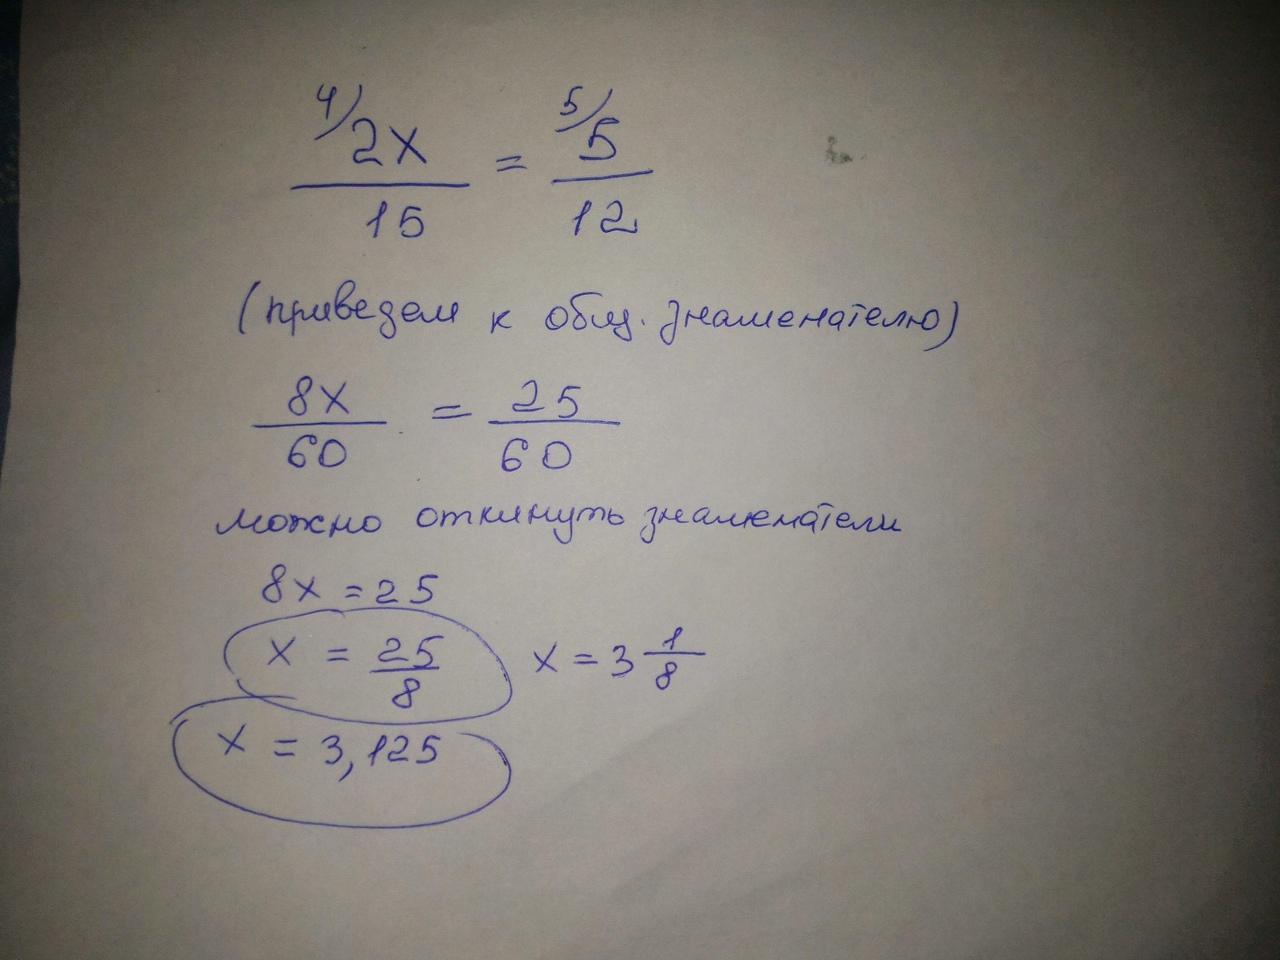 4/2x/15 = 5/5/12
(приведем к общ. знаменателю)
8x/60 = 25/60
можно откинуть знаменатели
8x = 25
x = 25/8 x = 3 1/8
x = 3,125